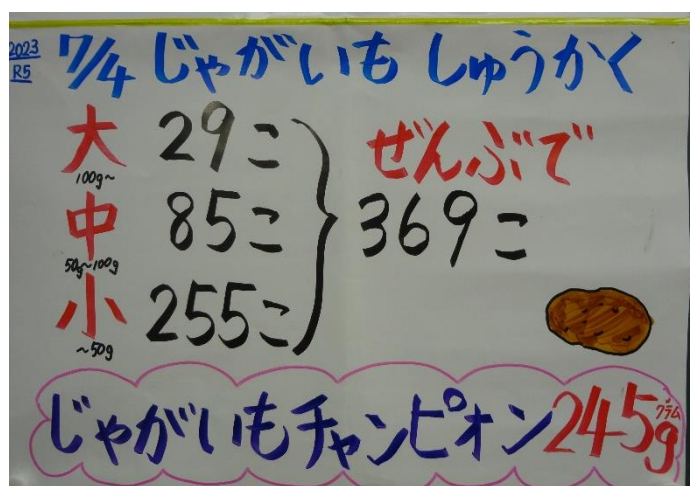 2023
R5
7/4 じゃがいも しゅうかく
大 29こ
100g~
中 85こ
50g~100g
小 255こ
~50g
ぜんぶで
369こ
じゃがいもチャンピオン245g
グラム